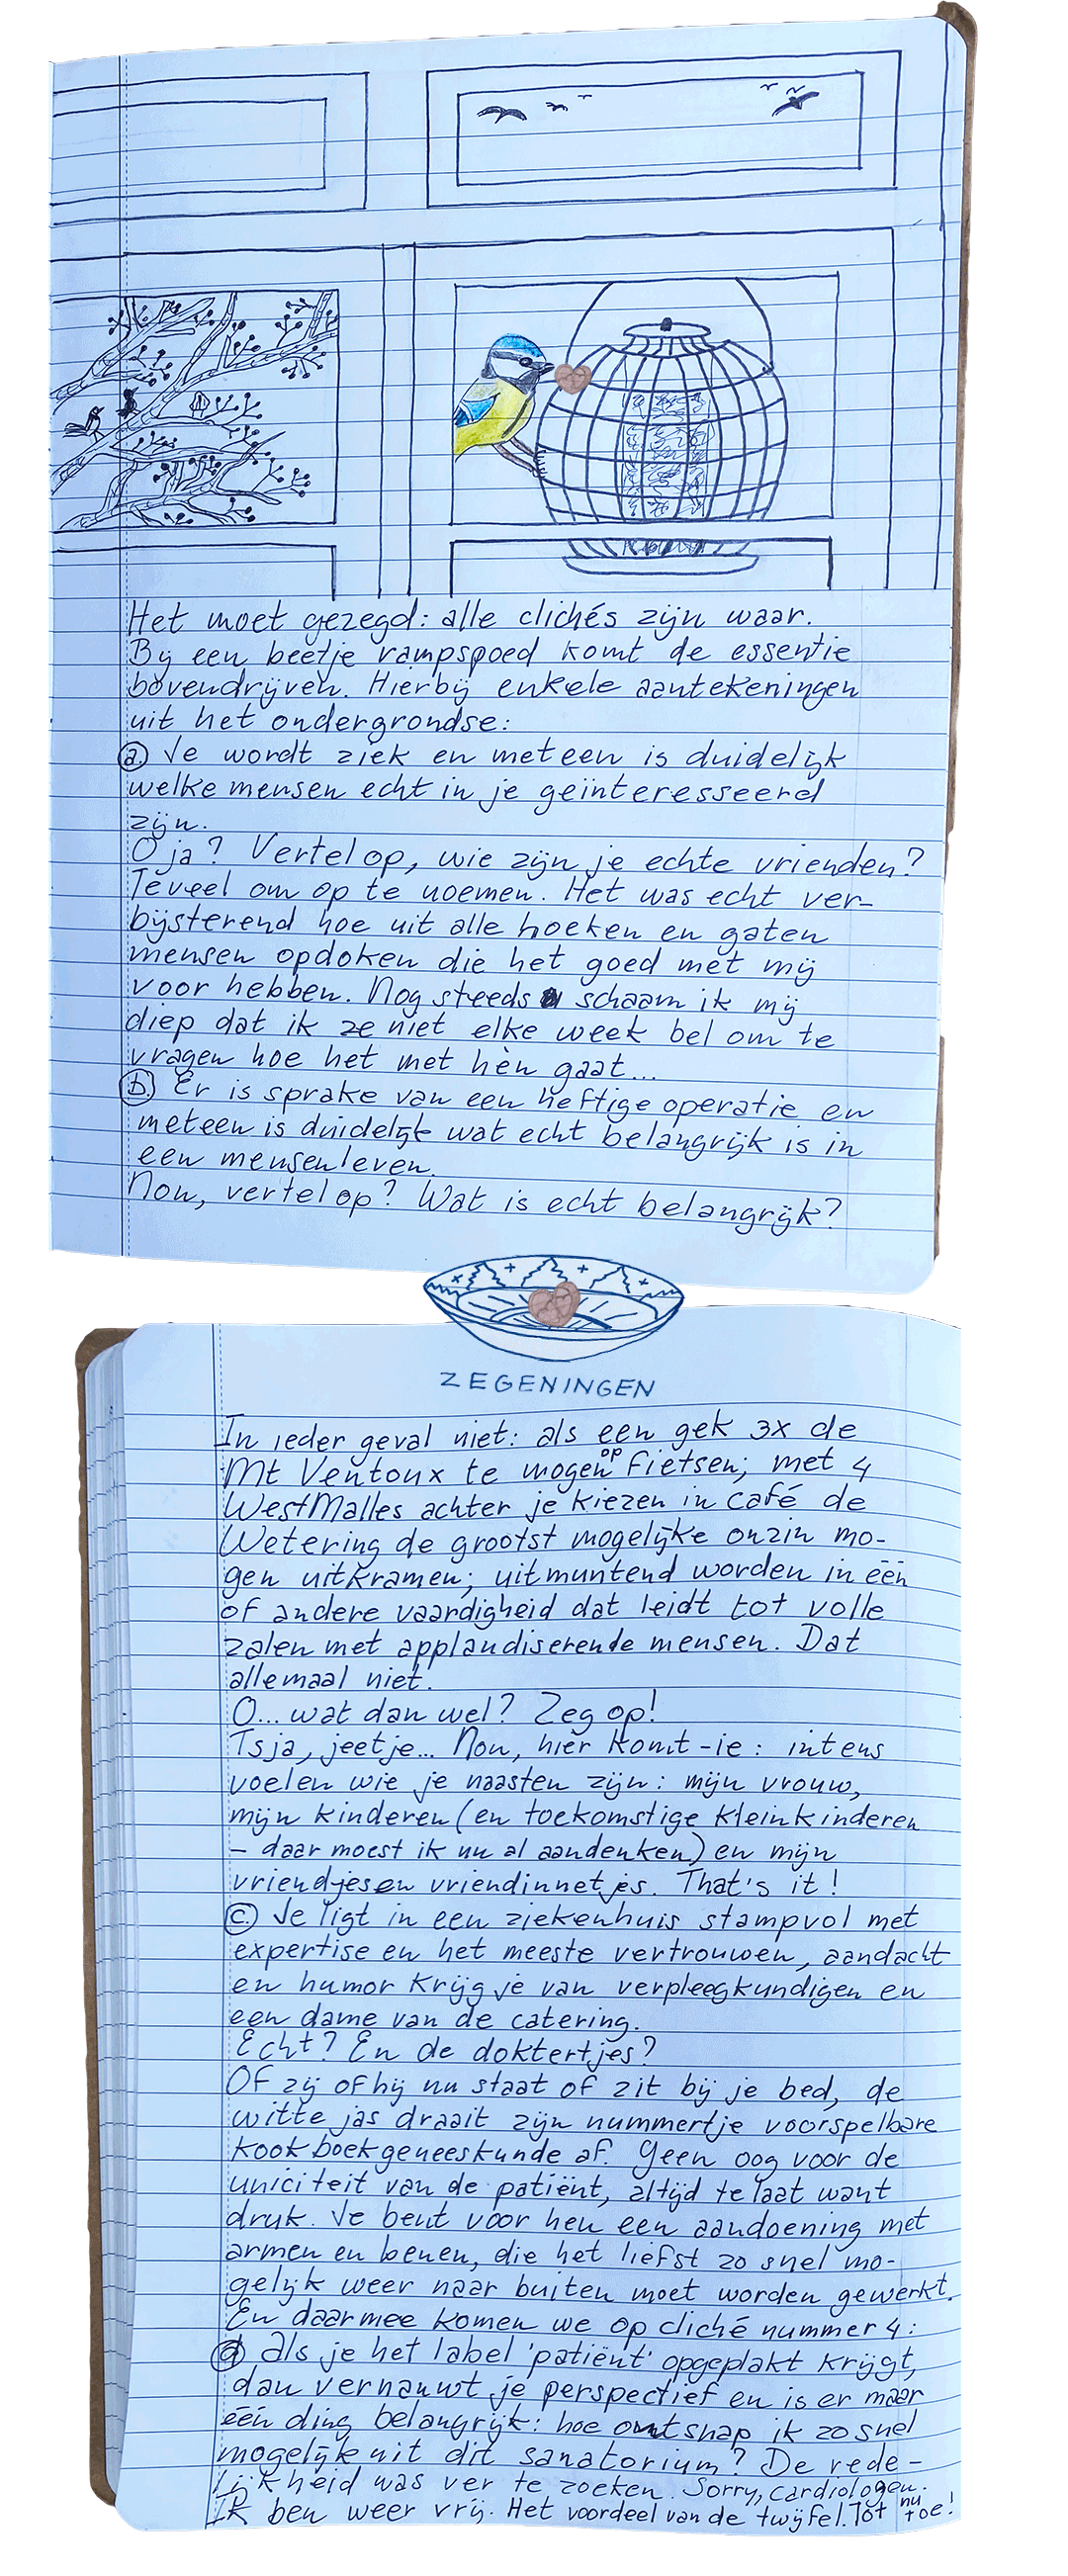 Het moet gezegd: alle clichés zijn waar.
Bij een beetje rampspoed komt de essentie
bovendrijven. Hierbij enkele aantekeningen
uit het ondergrondse:
a. Je wordt ziek en meteen is duidelijk
welke mensen echt in je geïnteresseerd
zijn.
O ja? Vertel op, wie zijn je echte vrienden?
Teveel om op te noemen. Het was echt ver-
bijsterend hoe uit alle hoeken en gaten
mensen opdoken die het goed met mij
voor hebben. Nog steeds schaam ik mij
diep dat ik ze niet elke week bel om te
vragen hoe het met hèn gaat...
b. Er is sprake van een heftige operatie en
meteen is duidelijk wat echt belangrijk is in
een mensenleven.
Nou, vertel op? Wat is echt belangrijk?
ZEGENINGEN
In ieder geval niet: als een gek 3x de
Mt Ventoux te mogen op fietsen; met 4
WestMalles achter je kiezen in café de
Wetering de grootst mogelijke onzin mo-
gen uitkramen; uitmuntend worden in één
of andere vaardigheid dat leidt tot volle
zalen met applaudiserende mensen. Dat
allemaal niet.
O... wat dan wel? Zeg op!
Tsja, jeetje... Nou, hier komt-ie: intens
voelen wie je naasten zijn: mijn vrouw,
mijn kinderen (en toekomstige kleinkinderen
- daar moest ik nu al aandenken) en mijn
vriendjes en vriendinnetjes. That's it!
c. Je ligt in een ziekenhuis stampvol met
expertise en het meeste vertrouwen, aandacht
en humor krijg je van verpleegkundigen en
een dame van de catering.
Echt? En de doktertjes?
Of zij of hij nu staat of zit bij je bed, de
witte jas draait zijn nummertje voorspelbare
kookboekgeneeskunde af. Geen oog voor de
uniciteit van de patiënt, altijd te laat want
druk. Je bent voor hen een aandoening met
armen en benen, die het liefst zo snel mo-
gelijk weer naar buiten moet worden gewerkt.
En daarmee komen we op cliché nummer 4:
d. Als je het label 'patiënt' opgeplakt krijgt,
dan vernauwt je perspectief en is er maar
één ding belangrijk: hoe ontsnap ik zo snel
mogelijk uit dit sanatorium? De rede-
lijkheid was ver te zoeken. Sorry, cardiologen.
Ik ben weer vrij. Het voordeel van de twijfel. Tot nu toe!